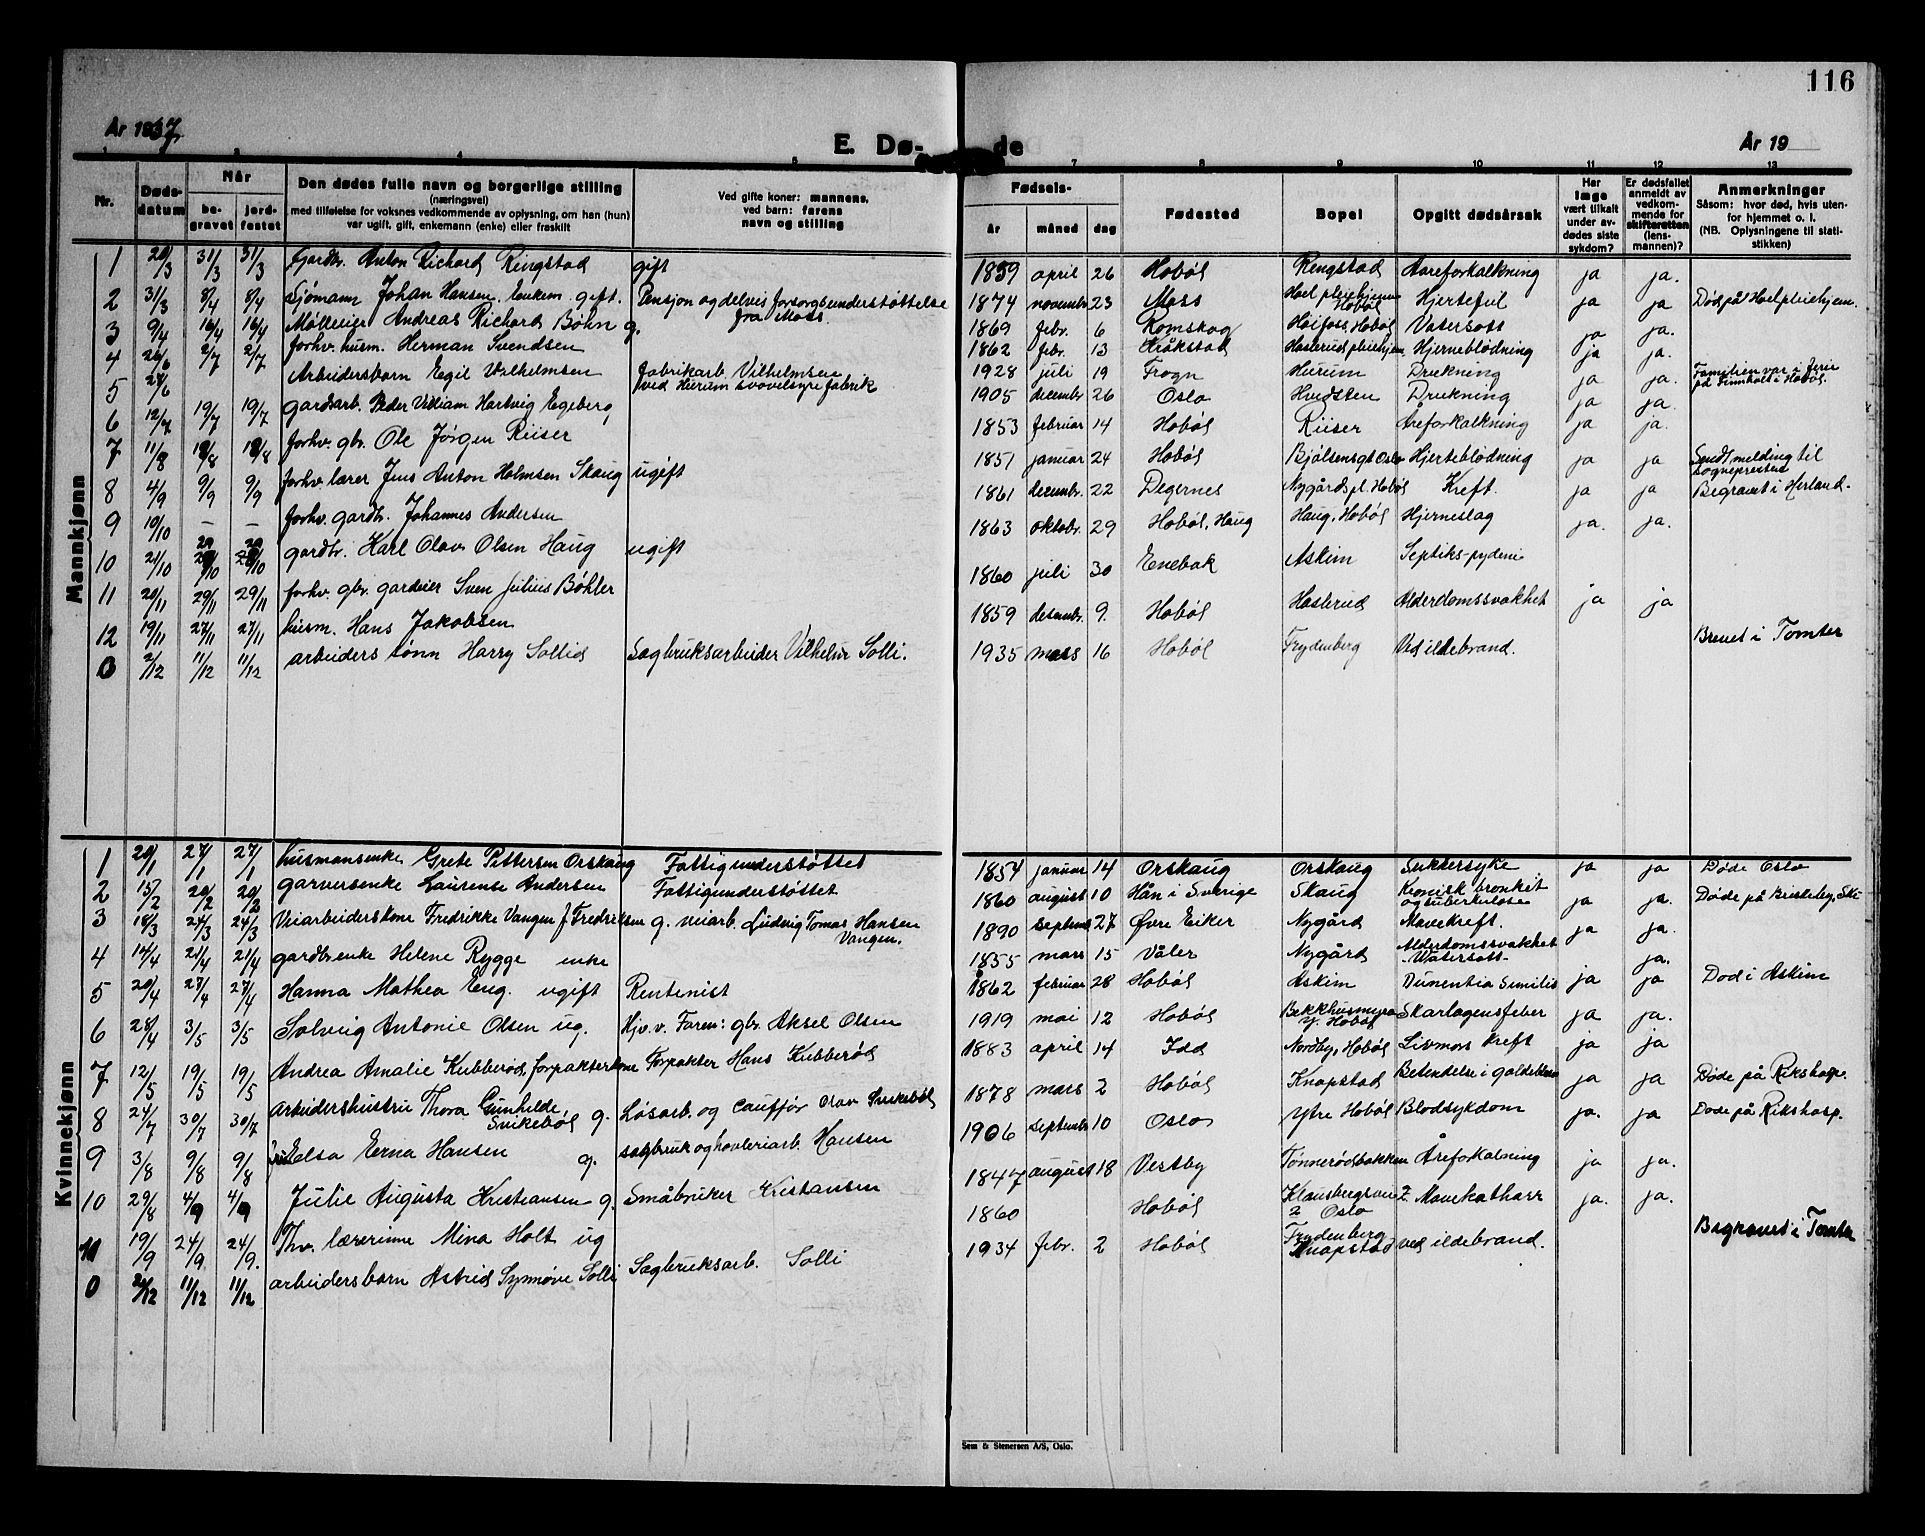 116
År 1937
E. Dø-
de
År 19
1 3 4 5 7 8 9 10 11 12 13
Nr.
Døds-
datum
Når
be-
gravet
jord-
festet
Den dødes fulle navn og borgerlige stilling
(næringsvei)
med tilføielse for voksnes vedkommende av oplysning, om han (hun)
var ugift, gift, enkemann (enke) eller fraskilt
Ved gifte koner: mannens,
ved barn: farens
navn og stilling
Fødsels-
år måned dag
Fødested
Bopel
Opgitt dødsårsak
Har
læge
vært tilkalt
under av-
dødes siste
sykdom?
Er dødsfallet
anmeldt av
vedkom-
mende for
skifteretten
(lens-
mannen)?
Anmerkninger
Såsom: hvor død, hvis uten-
for hjemmet o. l.
(NB. Oplysningene til stati-
stikken)
Mannkjønn
1 29/3 31/3 31/3 Gardbr. Anton Richard Ringstad gift 1859 april 26 Hobøl Ringstad Aareforkalkning ja ja.
2 31/3 8/4 8/4 Sjømann Johan Hansen, Enkem. gift. Pensjon og delvis forsorgsunderstøttelse
fra Moss. 1874 novembr 23 Moss Høel pleiehjem
Hobøl Hjertefeil ja ja Død på Høel pleiehjem.
3 9/4 16/4 16/4 Mølleeier Andreas Richard Bøhn g. 1869 febr. 6 Romskog Høifoss, Hobøl Vatersott ja ja.
4 26/6 2/7 2/7 forhv. husm. Herman Svendsen 1862 febr. 13 Kråkstad Haslerud pleiehjem. Hjerneblødning ja ja.
5 27/6 Arbeidersbarn Egil Vilhelmsen fabrikarb. Vilhelmsen
ved Hurum svovelsyre fabrik 1928 juli 19 Frogn Hurum Drukning ja ja. Familien var i ferie
på Finnholt i Hobøl.
6 12/7 19/7 19/7 gardsarb. Peder William Hartvig Egeberg, 1905 decembr 26 Oslo Hvidsten Drukning ja ja.
7 11/8 18/8 18/8 forhv. gbr. Ole Jørgen Riiser 1853 februar 14 Hobøl Riiser Åreforkalkning ja ja.
8 4/9 9/9 9/9 forhv. lærer Jens Anton Holmsen Skaug ugift 1851 januar 24 Hobøl Bjølsensgt Oslo Hjerteblødning ja ja Sendt melding til
sognepresten
9 10/10 — — forhv. gardbr. Johannes Andersen 1861 decembr. 22 Degernes Nygårds pl. Hobøl Kreft. ja ja Begravet i Herland.
10 21/10 29/10 29/10 gardbr. Karl Olav Olsen Haug ugift 1863 oktobr. 29 Hobøl, Haug Haug, Hobøl Hjerneslag ja. ja.
11 20/11 29/11 29/11 forhv. gbr. gardeier Sven Julius Bøhler 1860 juli 30 Enebak Askim
12 19/11 27/11 27/11 husm. Hans Jakobsen 1859 desembr. 9. Hobøl Haslerud Alderdomssvakhet ja ja
0 2/12 11/12 11/12 arbeiders sønn Harry Sollid Sagbruksarbeider Vilhelm Solli. 1935 mars 16 Hobøl Frydenberg Ved ildebrand. Brent i Tomter
Kvinnekjønn
1 20/1 27/1 27/1 husmansenke Grete Pettersen Orskaug Fattigunderstøttet 1854 januar 14 Orskaug Orskaug Sukkersyke ja ja Døde Oslo
2 15/2 20/2 20/2 garverenke Laurense Andersen Fattigunderstøttet 1860 august 10 Hån i Sverige Skaug Kronisk bronkit
og tuberkulose ja ja. Døde på
3 18/3 24/3 24/3 Veiarbeiderskone Fredrikke Vangen f Fredriksen g. veiarb. Ludvig Tomas Hansen
Vangen. 1890 septembr 27 Øvre Eiker Nygård Mavekreft. ja ja.
4 14/4 21/4 21/4 gardbr.enke Helene Rygge enke 1855 mars 15 Våler Nygård Alderdomssvakhet
-Vatersott- ja.
5 20/4 27/4 27/4 Hanna Mathea Eng. ugift Rentenist 1862 februar 28 Hobøl Askim Dementia senilis ja ja Død i Askim
6 28/4 3/5 3/5 Solveig Antonie Olsen ug. Hjv. v. Faren: gbr. Aksel Olsen 1919 mai 12 Hobøl Bekkhusmyra
y. Hobøl Skarlagensfeber ja ja.
7 12/5 19/5 19/5 Andrea Amalie Kubberød, forpakterkone Forpakter Hans Kubberød 1883 april 14 Idd Nordby, Hobøl Livmors kreft ja ja
8 24/7 30/7 30/7 arbeidershustru Thora Gunhilde,
Svikebøl g. Løsarb. og cauffør Olav Svikebøl 1878 mars 2 Hobøl Knapstad Betendelse i galdeblæren ja ja Døde på Rikshosp.
9 3/8 9/8 9/8 Elsa Erna Hansen g. sagbruk og høvleriarb. Hansen 1906 septembr 10 Oslo Ytre Hobøl Blodsykdom ja. ja Døde på Rikshosp.
10 29/8 4/9 4/9 Julie Augusta Kristiansen g. Småbruker Kristiansen 1847 august 18 Vestby Tønnerødbakken Åreforkalkning ja ja.
11 19/9 24/9 24/9. Fhv. lærerinne Mina Holt ug 1860 Hobøl
2 Oslo Mavekatharr ja. ja.
0 2/12 11/12 11/12 arbeidersbarn Astrid Synnøve Solli Sagbruksarb. Solli 1934 febr. 2 Hobøl Frydenberg
Knapstad ved ildebrand. Begravet i Tomter
Sem & Stenersen A/S, Oslo.